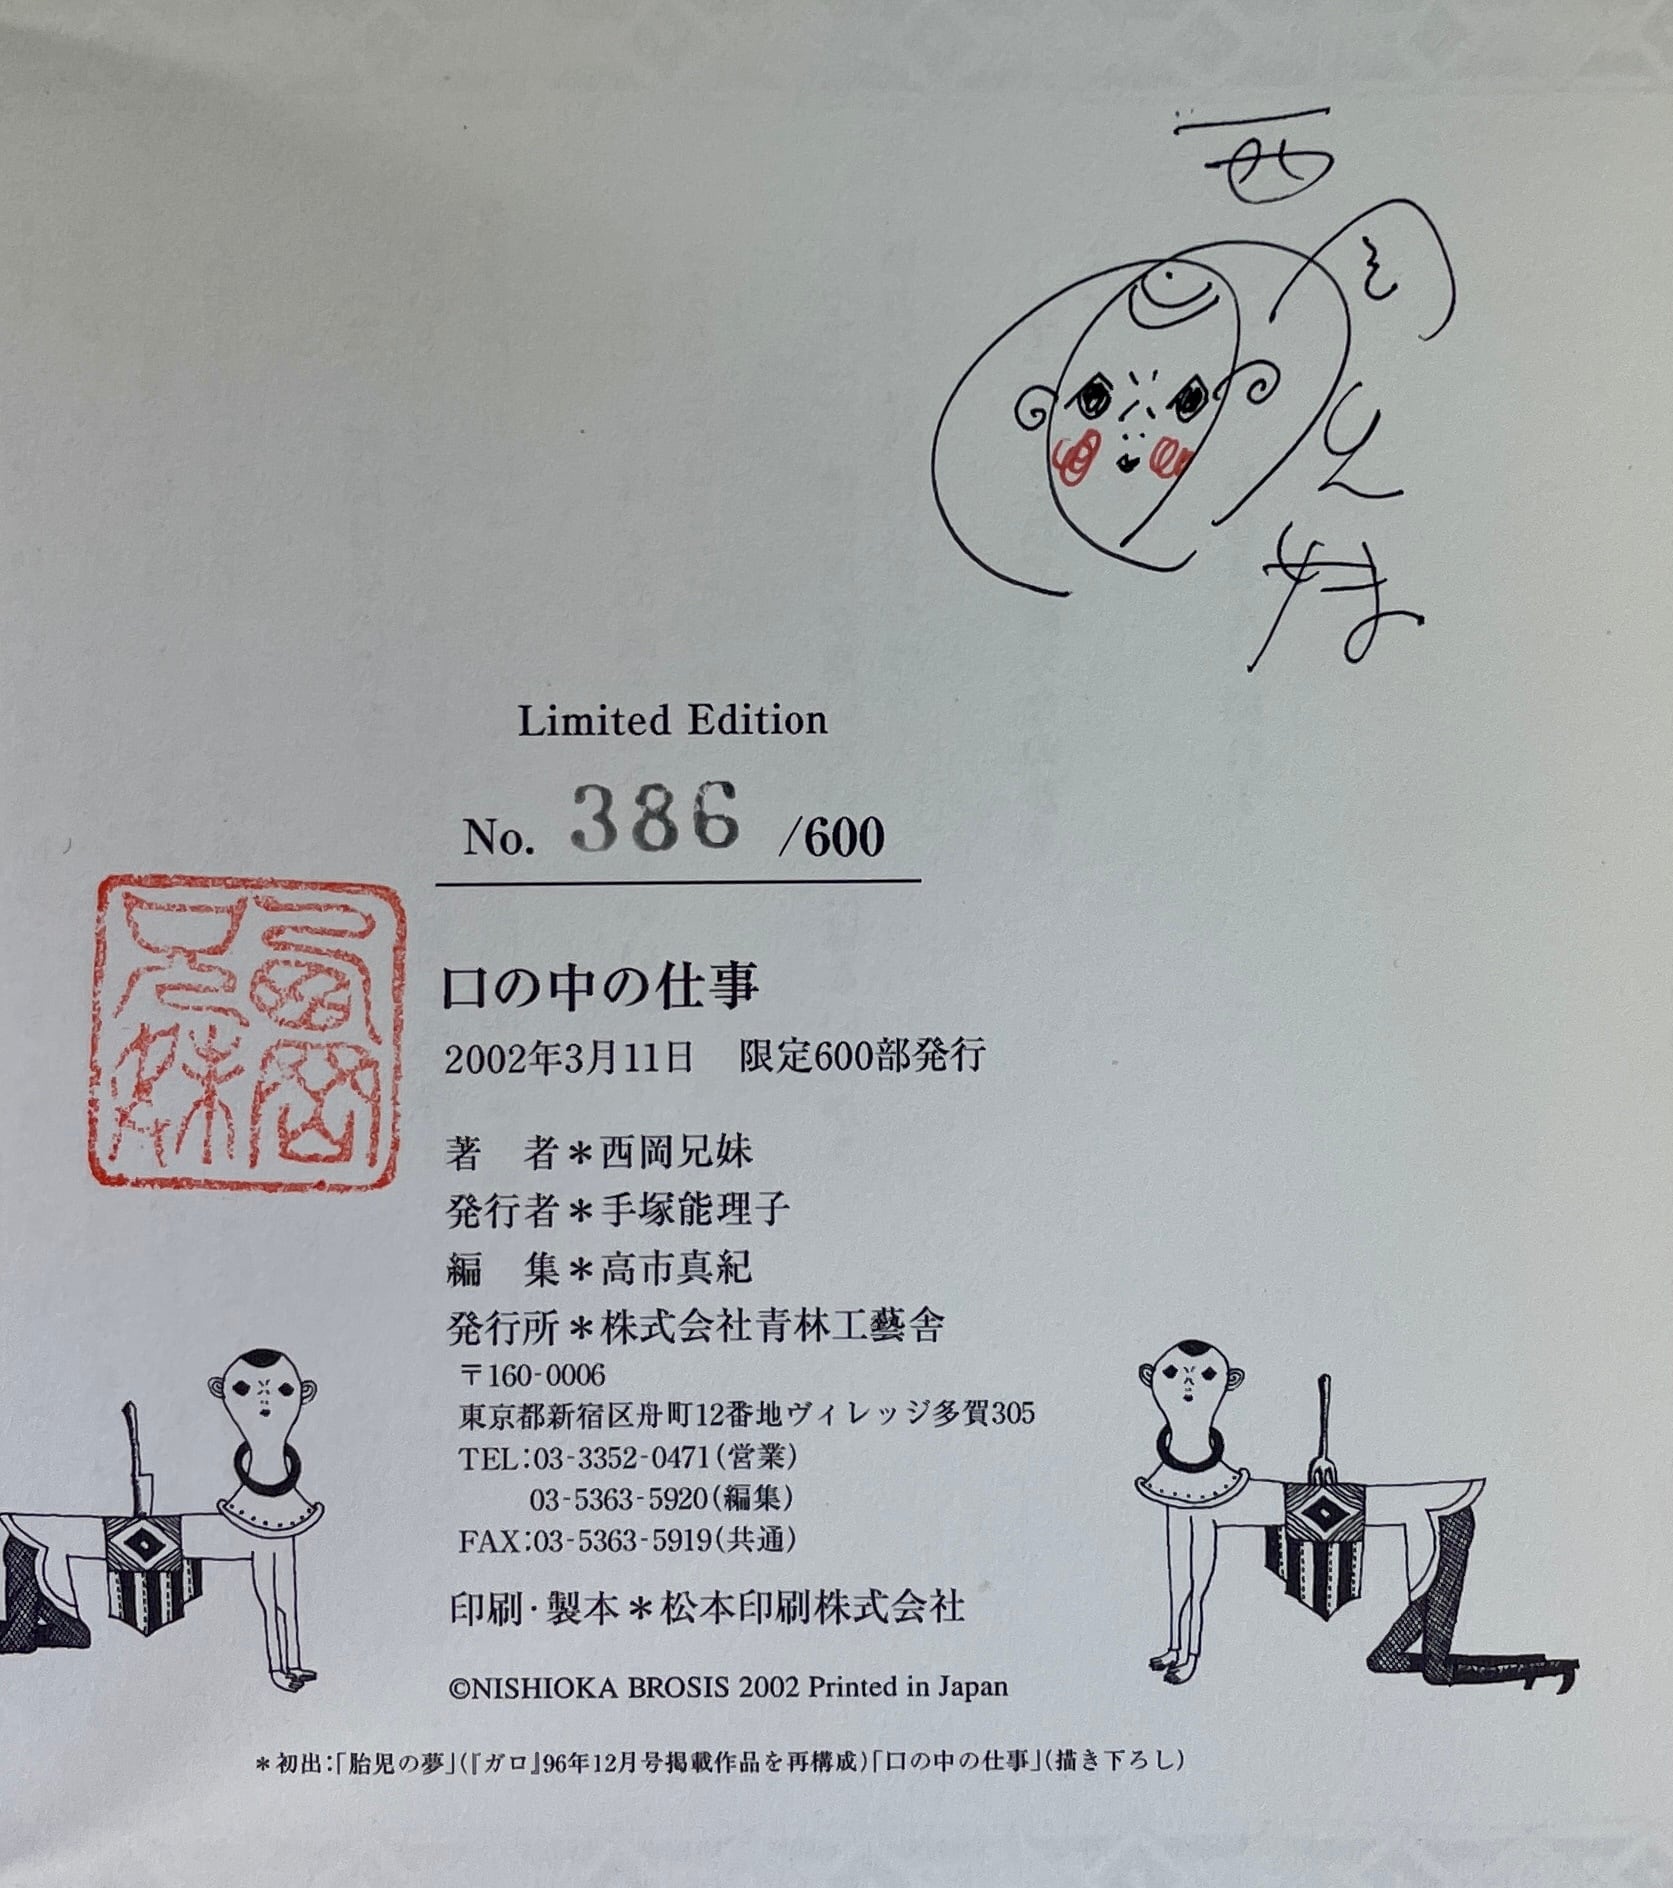 西岡兄妹
Limited Edition
No. 386 /600
西岡兄妹
口の中の仕事
2002年3月11日　限定600部発行
著　者＊西岡兄妹
発行者＊手塚能理子
編　集＊高市真紀
発行所＊株式会社青林工藝舎
〒160-0006
東京都新宿区舟町12番地ヴィレッジ多賀305
TEL：03-3352-0471（営業）
03-5363-5920（編集）
FAX：03-5363-5919（共通）
印刷・製本＊松本印刷株式会社
©NISHIOKA BROSIS 2002 Printed in Japan
＊初出：「胎児の夢」（『ガロ』96年12月号掲載作品を再構成）「口の中の仕事」（描き下ろし）